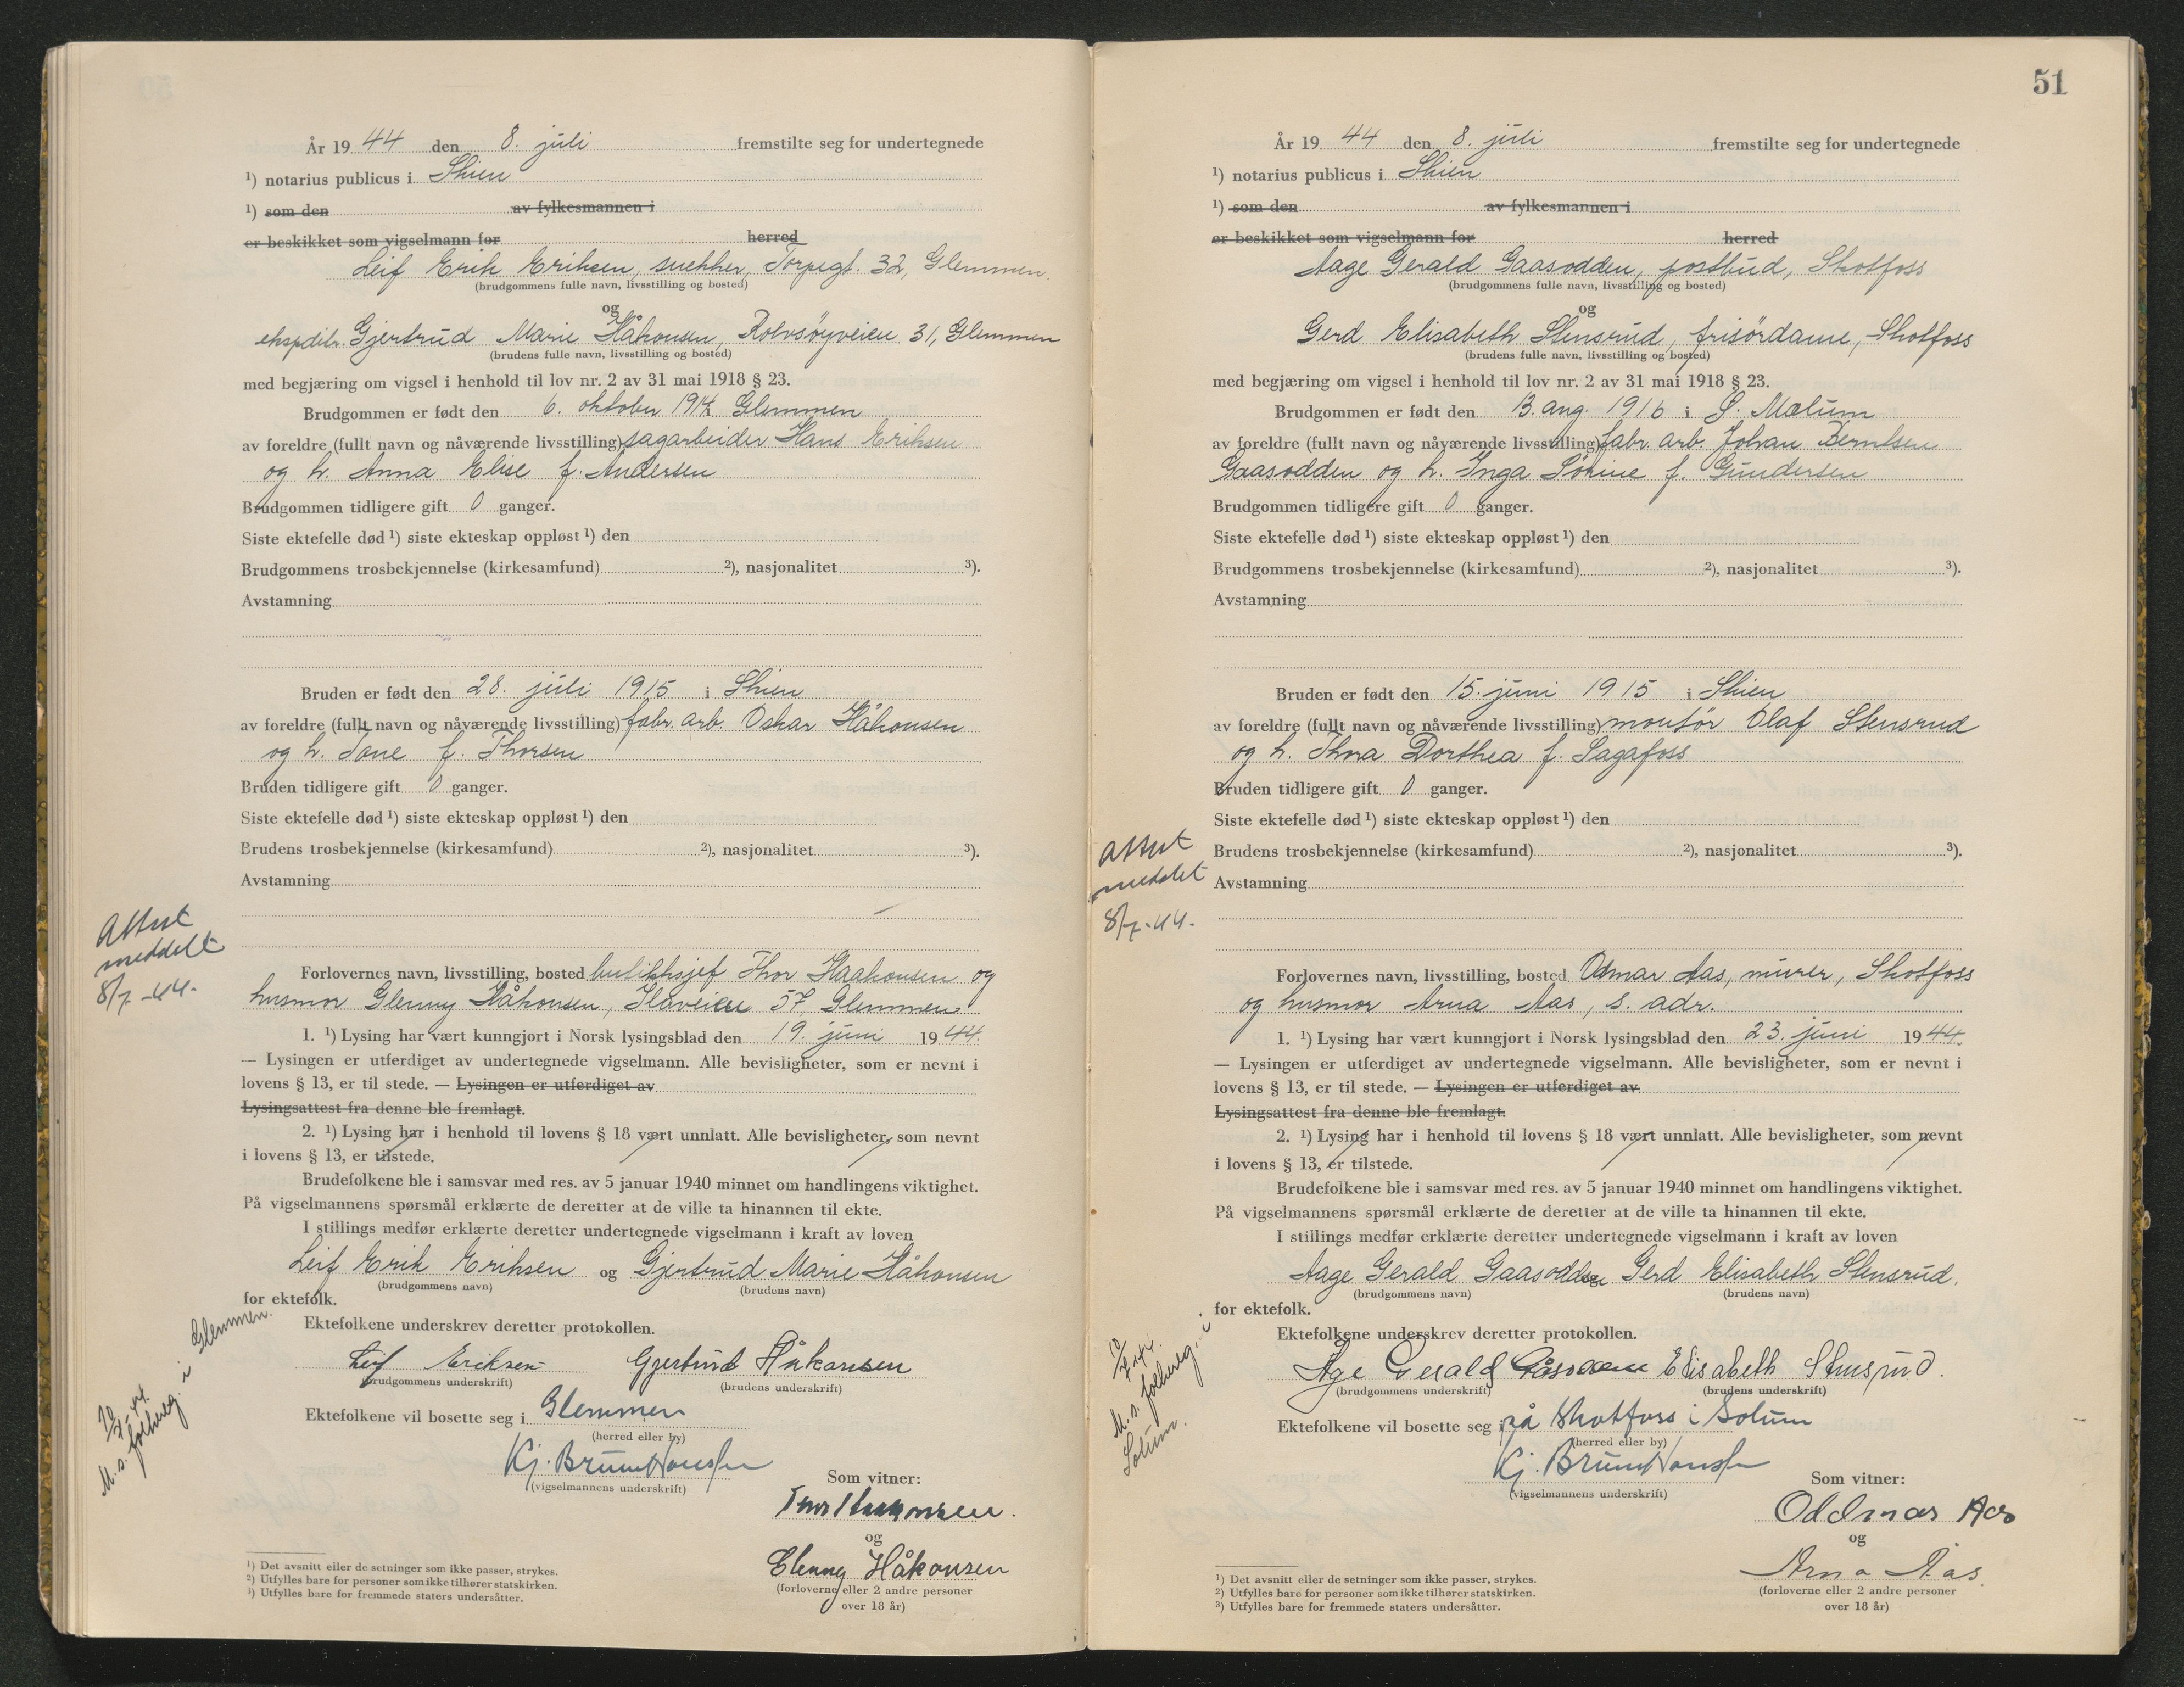 År 19 44 den 8. juli fremstilte seg for undertegnede
¹) notarius publicus i Skien
¹) som den av fylkesmannen i
er beskikket som vigselmann for herred
Leif Erik Eriksen, snekker, Torpegt. 32, Glemmen.
(brudgommens fulle navn, livsstilling og bosted)
og
ekspditr. Gjertrud Marie Håkonsen, Rolvsöyveien 31, Glemmen
(brudens fulle navn, livsstilling og bosted)
med begjæring om vigsel i henhold til lov nr. 2 av 31 mai 1918 § 23.
Brudgommen er født den 6. oktober 1914 Glemmen
av foreldre (fullt navn og nåværende livsstilling) sagarbeider Hans Eriksen
og h. Anna Elise f. Andersen
Brudgommen tidligere gift 0 ganger.
Siste ektefelle død ¹) siste ekteskap oppløst ¹) den
Brudgommens trosbekjennelse (kirkesamfund) ²), nasjonalitet ³).
Avstamning
Bruden er født den 28. juli 1915 i Skien
av foreldre (fullt navn og nåværende livsstilling) fabr. arb. Oskar Håkonsen
og h. Tone f. Thorsen
Bruden tidligere gift 0 ganger.
Siste ektefelle død ¹) siste ekteskap oppløst ¹) den
Brudens trosbekjennelse (kirkesamfund) ²), nasjonalitet ³).
Avstamning
Attest
meddelt
8/7-44.
Forlovernes navn, livsstilling, bosted butikksjef Thor Haakonsen og
husmor Glenny Håkonsen, Ilaveien 57, Glemmen
1. ¹) Lysing har vært kunngjort i Norsk lysingsblad den 19. juni 19 44.
— Lysingen er utferdiget av undertegnede vigselmann. Alle bevisligheter, som er nevnt i
lovens § 13, er til stede. — Lysingen er utferdiget av
Lysingsattest fra denne ble fremlagt.
2. ¹) Lysing har i henhold til lovens § 18 vært unnlatt. Alle bevisligheter, som nevnt
i lovens § 13, er tilstede.
Brudefolkene ble i samsvar med res. av 5 januar 1940 minnet om handlingens viktighet.
På vigselmannens spørsmål erklærte de deretter at de ville ta hinannen til ekte.
I stillings medfør erklærte deretter undertegnede vigselmann i kraft av loven
Leif Erik Eriksen og Gjertrud Marie Håkonsen
(brudgommens navn) (brudens navn)
for ektefolk.
Ektefolkene underskrev deretter protokollen.
Leif Eriksen Gjertrud Håkonsen
(brudgommens underskrift) (brudens underskrift)
Ektefolkene vil bosette seg i Glemmen
(herred eller by)
10/7-44.
M. s. folkereg. i Glemmen.
Kj. Bruun Hansen
(vigselmannens underskrift)
Som vitner:
Thor Haakonsen.
og
Glenny Håkonsen
(forloverne eller 2 andre personer
over 18 år)
¹) Det avsnitt eller de setninger som ikke passer, strykes.
²) Utfylles bare for personer som ikke tilhører statskirken.
³) Utfylles bare for fremmede staters undersåtter.
51
År 19 44 den 8. juli fremstilte seg for undertegnede
¹) notarius publicus i Skien
¹) som den av fylkesmannen i
er beskikket som vigselmann for herred
Aage Gerald Gaasodden, postbud, Skotfoss
(brudgommens fulle navn, livsstilling og bosted)
og
Gerd Elisabeth Stensrud, frisördame, Skotfoss
(brudens fulle navn, livsstilling og bosted)
med begjæring om vigsel i henhold til lov nr. 2 av 31 mai 1918 § 23.
Brudgommen er født den 13. aug. 1916 i S. Mælum
av foreldre (fullt navn og nåværende livsstilling) fabr. arb. Johan Berntsen
Gaasodden og h. Inga Sörine f. Gundersen
Brudgommen tidligere gift 0 ganger.
Siste ektefelle død ¹) siste ekteskap oppløst ¹) den
Brudgommens trosbekjennelse (kirkesamfund) ²), nasjonalitet ³).
Avstamning
Bruden er født den 15. juni 1915 i Skien
av foreldre (fullt navn og nåværende livsstilling) montör Olaf Stensrud
og h. Thora Dorthea f. Sagafoss
Bruden tidligere gift 0 ganger.
Siste ektefelle død ¹) siste ekteskap oppløst ¹) den
Brudens trosbekjennelse (kirkesamfund) ²), nasjonalitet ³).
Avstamning
Attest
meddelt
8/7-44.
Forlovernes navn, livsstilling, bosted Odmar Aas, murer, Skotfoss
og husmor Arna Aas, s. adr.
1. ¹) Lysing har vært kunngjort i Norsk lysingsblad den 23. juni 19 44.
— Lysingen er utferdiget av undertegnede vigselmann. Alle bevisligheter, som er nevnt i
lovens § 13, er til stede. — Lysingen er utferdiget av
Lysingsattest fra denne ble fremlagt.
2. ¹) Lysing har i henhold til lovens § 18 vært unnlatt. Alle bevisligheter, som nevnt
i lovens § 13, er tilstede.
Brudefolkene ble i samsvar med res. av 5 januar 1940 minnet om handlingens viktighet.
På vigselmannens spørsmål erklærte de deretter at de ville ta hinannen til ekte.
I stillings medfør erklærte deretter undertegnede vigselmann i kraft av loven
Aage Gerald Gaasodden og Gerd Elisabeth Stensrud.
(brudgommens navn) (brudens navn)
for ektefolk.
Ektefolkene underskrev deretter protokollen.
Åge Gerald Gåsodden Elisabeth Stensrud.
(brudgommens underskrift) (brudens underskrift)
Ektefolkene vil bosette seg i på Skotfoss i Solum
(herred eller by)
10/7-44.
M. s. folkereg. i
Solum.
Kj. Bruun Hansen
(vigselmannens underskrift)
Som vitner:
Oddmar Aas
og
Arna Aas.
(forloverne eller 2 andre personer
over 18 år)
¹) Det avsnitt eller de setninger som ikke passer, strykes.
²) Utfylles bare for personer som ikke tilhører statskirken.
³) Utfylles bare for fremmede staters undersåtter.